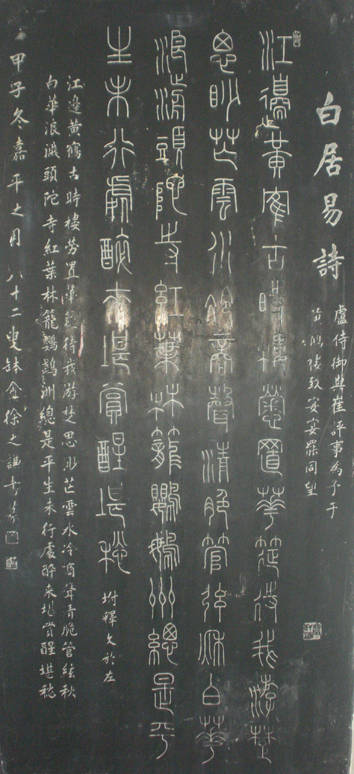 白居易詩
盧侍御與崔評事為予于
黃鶴樓致宴宴罷同望
江邊黃隺古時樓勞置華筵待我游楚
思眇茫雲水冷商聲清脆管弦秋白華
浪濺頭陀寺紅葉林籠鸚鵡洲總是平
生未行處醉來堪賞醒堪愁 坿釋文於左
江邊黃鶴古時樓勞置華筵待我游楚思眇茫雲水冷商聲清脆管絃秋
白華浪濺頭陀寺紅葉林籠鸚鵡洲總是平生未行處醉來堪賞醒堪愁
甲子冬嘉平之月 八十二叟 徐之謙書